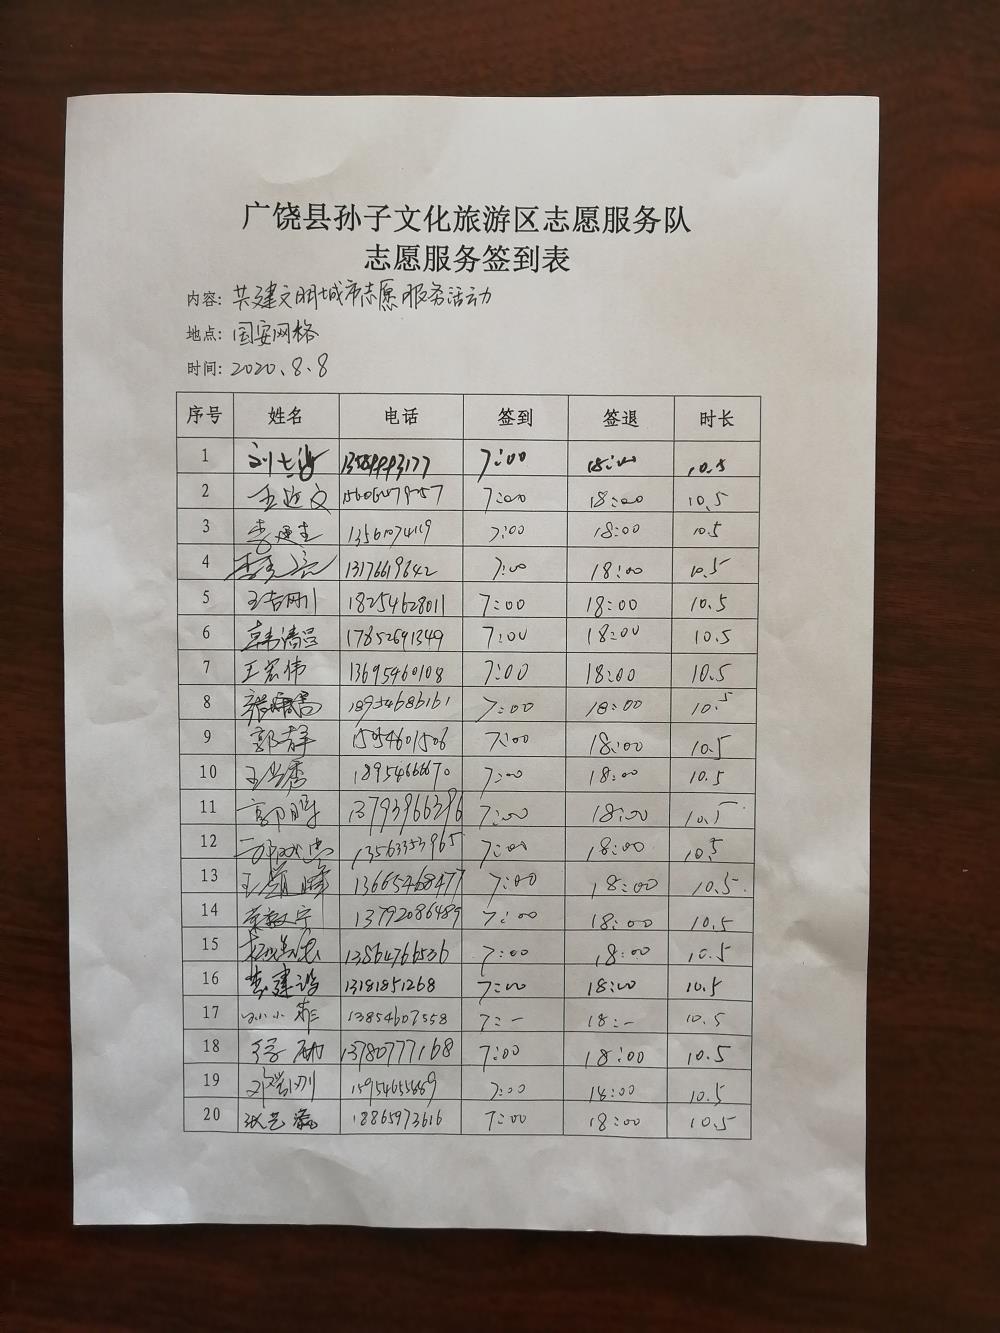 广饶县孙子文化旅游区志愿服务队
志愿服务签到表
内容: 共建文明城市志愿服务活动
地点: 国安网格
时间: 2020.8.8
序号 姓名 电话 签到 签退 时长
1 7:00 18:00 10.5
2 7:00 18:00 10.5
3 李建 13561074119 7:00 18:00 10.5
4 13176619642 7:00 18:00 10.5
5 王吉刚 18254628011 7:00 18:00 10.5
6 韩清 17852691349 7:00 18:00 10.5
7 王宏伟 13695460108 7:00 18:00 10.5
8 张 18954686161 7:00 18:00 10.5
9 郭静 15954601506 7:00 18:00 10.5
10 王 秀 18954666670 7:00 18:00 10.5
11 郭 13793966296 7:00 18:00 10.5
12 13563353965 7:00 18:00 10.5
13 王 峰 13665468477 7:00 18:00 10.5
14 宁 13792086489 7:00 18:00 10.5
15 13864766536 7:00 18:00 10.5
16 李建 13181851268 7:00 18:00 10.5
17 孙小菲 13854607558 7:- 18:- 10.5
18 徐 13780777168 7:00 18:00 10.5
19 邓 刚 7:00 18:00 10.5
20 张艺 18865973616 7:00 18:00 10.5